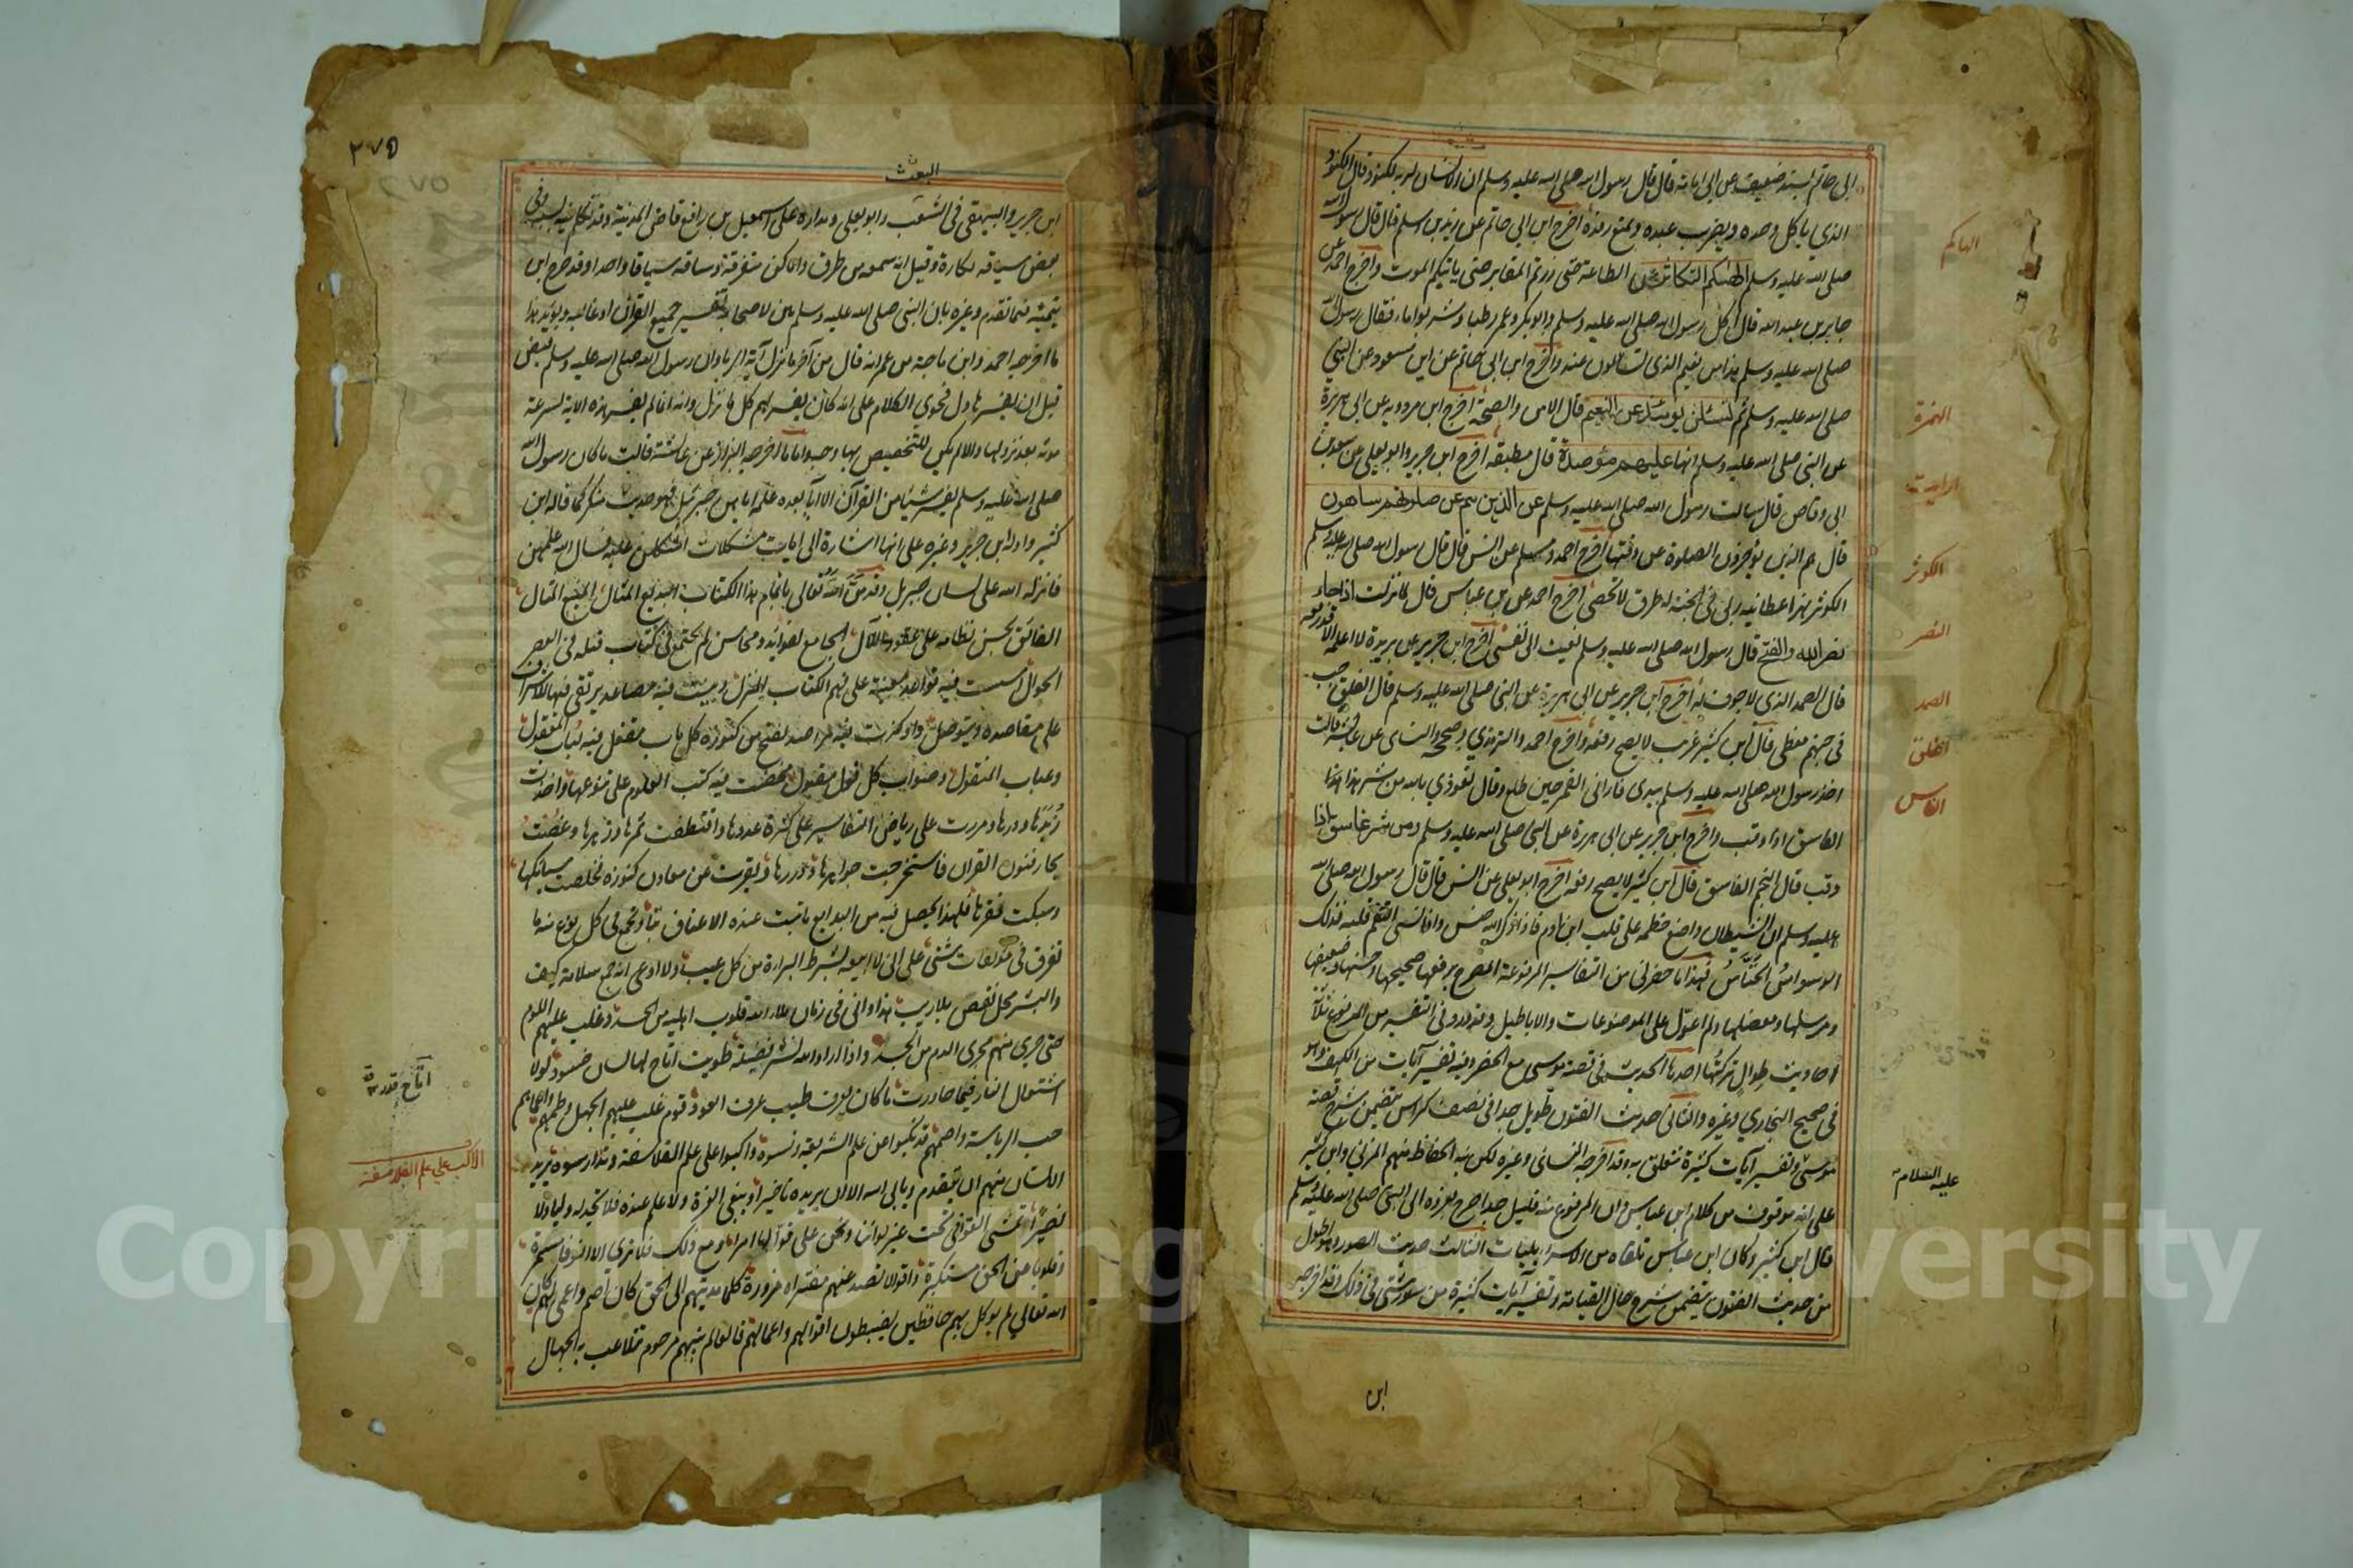 ابى حاتم بسند ضعيف عن ابى امامة قال قال رسول الله صلى الله عليه وسلم ان الانسان لربه لكنود قال الكنود
الذي ياكل وحده ويضرب عبده ويمنع رفده اخرج ابن ابي حاتم عن زيد بن اسلم قال قال رسول الله
صلى الله عليه وسلم الهٰكم التكاثر عن الطاعة حتى زرتم المقابر حتى ياتيكم الموت واخرج احمد عن
جابر بن عبد الله قال اكل رسول الله صلى الله عليه وسلم وابو بكر وعمر رطبا وشربوا ماء فقال رسول الله
صلى الله عليه وسلم هذا من النعيم الذى تسألون عنه واخرج ابن ابى حاتم عن ابن مسعود عن النبي
صلى الله عليه وسلم ثم لتسئلن يومئذ عن النعيم قال الامن والصحة اخرج ابن مردويه عن ابى هريرة
عن النبى صلى الله عليه وسلم انها عليهم مؤصدة قال مطبقة اخرج ابن جرير وابو يعلى عن سعد بن
ابى وقاص قال سالت رسول الله صلى الله عليه وسلم عن الذين هم عن صلوتهم ساهون
قال هم الذين يؤخرون الصلوة عن وقتها اخرج احمد ومسلم عن انس قال قال رسول الله صلى الله عليه وسلم
الكوثر نهر اعطانيه ربى فى الجنة له طرق لا تحصى اخرج احمد عن ابن عباس قال لما نزلت اذا جاء
نصر الله والفتح قال رسول الله صلى الله عليه وسلم نعيت الى نفسى اخرج ابن جرير عن بريدة لا اعلمه الا قد رفعه
قال الصمد الذى لا جوف له اخرج ابن جرير عن ابى هريرة عن النبى صلى الله عليه وسلم قال الفلق جب
فى جهنم مغطى قال ابن كثير غريب لا يصح رفعه واخرج احمد والترمذي وصححه والنساى عن عايشة قالت
اخذ رسول الله صلى الله عليه وسلم بيدى فارانى القمر حين طلع وقال تعوذي بالله من شر هذا هذا
الغاسق اذا وقب واخرج ابن جرير عن ابى هريرة عن النبى صلى الله عليه وسلم ومن شر غاسق اذا
وقب قال النجم الغاسق قال ابن كثير لا يصح رفعه اخرج ابو يعلى عن انس قال قال رسول الله صلى الله
عليه وسلم ان الشيطان واضع خطمه على قلب ابن ادم فان ذكر الله خنس وان نسى التقم قلبه فذلك
الوسواس الخناس فهذا ما حضرنى من التفاسير المرفوعة المصرح برفعها صحيحها وحسنها وضعيفها
ومرسلها ومعضلها ولم اعول على الموضوعات والاباطيل وقد ورد فى التفسير من المرفوع ثلاثة
احاديث طوال تركتها احدها الحديث فى قصة موسى مع الخضر وفيه تفسير آيات من الكهف وهو
فى صحيح البخاري وغيره والثانى حديث الفتون طويل جدا فى نصف كراس يتضمن شرح قصة
موسى وتفسير آيات كثيرة تتعلق به وقد اخرجه النسائى وغيره لكن نبه الحفاظ منهم المزني وابن كثير
على انه موقوف من كلام ابن عباس وان المرفوع منه قليل جدا صرح بعزوه الى النبى صلى الله عليه وسلم
قال ابن كثير وكان ابن عباس تلقاه من الاسرائيليات الثالث حديث الصور وهو اطول
من حديث الفتون يتضمن شرح حال القيامة وتفسير آيات كثيرة من سور شتى فى ذلك وقد اخرجه
ابن
الهاكم
الهمزة
ارايت
الكوثر
النصر
الصمد
الفلق
الناس
عليه السلام
٢٧٥
البعث
ابن جرير والبيهقى فى الشعب وابو يعلى ومداره على اسمعيل بن رافع قاضى المدينة وقد تكلم فيه بسببه وفى
بعض سياقه نكارة وقيل انه سمعه من طرق واماكن متفرقة وساقه سياقا واحدا وقد صرح ابن
تيمية فيما تقدم وغيره بان النبى صلى الله عليه وسلم بين لاصحابه تفسير جميع القرآن او غالبه ويؤيد هذا
ما اخرجه احمد وابن ماجة عن عمر انه قال من آخر ما نزل آية الربا وان رسول الله صلى الله عليه وسلم قبض
قبل ان يفسرها دل فحوي الكلام على انه كان يفسر لهم كل ما نزل وانه انما لم يفسر هذه الاية لسرعة
موته بعد نزولها والا لم يكن للتخصيص بها وجه واما ما اخرجه البزار عن عائشة قالت ما كان رسول الله
صلى الله عليه وسلم يفسر شيئا من القرآن الا آيا بعدد علمه اياهن جبرئيل فهو حديث منكر كما قاله ابن
كثير واوله ابن جرير وغيره على انها اشارة الى ايات مشكلات اشكلن عليه فسال الله علمهن
فانزله الله على لسان جبريل وقد من الله تعالى باتمام هذا الكتاب البديع المثال المنيع المنال
الفائق بحسن نظامه على عقود اللآل الجامع لفوائد ومحاسن لم تجتمع فى كتاب قبله فى العصر
الخوال اسست فيه قواعد معينة على فهم الكتاب المنزل وبينت فيه مصاعد يرتقى فيها للاشراف
على مقاصده ويتوصل واركزت فيه مراصد تفتح من كنوزه كل باب مقفل فيه لباب المعقول
وعباب المنقول وصواب كل قول مقبول مخضت فيه كتب العلوم على تنوعها واخذت
زبدها ودرها ومررت على رياض التفاسير على كثرة عددها واقتطفت ثمرها وزهرها وغصت
بحار فنون القرآن فاستخرجت جواهرها ودررها وبقرت عن معادن كنوزه فخلصت سبائكها
وسبكت فقرها فلهذا تحصل فيه من البدايع ما تبت عنده الاعناق بتا وتجمع فى كل نوع منه ما
تفرق فى مؤلفات شتى على انى لا ابيعه بشرط البراءة من كل عيب ولا ادعى انه جمع سلامة كيف
والبشر محل النقص بلا ريب هذا وانى فى زمان ملأ الله قلوب اهليه من الحسد وغلب عليهم اللوم
حتى جرى منهم مجرى الدم من الجسد واذا اراد الله نشر فضيلة طويت اتاح لها لسان حسود لولا
اشتعال النار فيما جاورت ما كان يعرف طيب عرف العود قوم غلب عليهم الجهل وطمهم واعماهم
حب الرياسة واصمهم قد نكبوا عن علم الشريعة ونسوه واكبوا على علم الفلاسفة وتدارسوه يريد
الانسان منهم ان يتقدم ويأبى الله الا ان يزيده تاخيرا ويبغى العزة ولا علم عنده فلا يجد له وليا ولا
نصيرا اتمشى القوافى تحت غير لوائنا ونحن على قوالها امراء ومع ذلك فلا ترى الا انوفا مشمرة
وقلوبا عن الحق مستكبرة واقوالا تصدر عنهم مفتراة مزورة كلما هديتهم الى الحق كان اصم واعمى لهم كان
الله تعالى لم يوكل بهم حافظين يضبطون اقوالهم واعمالهم فالعالم بينهم مرحوم تتلاعب به الجهال
اتاح قدر
الاكب على علم الفلاسفة
Copyright © King Saud University